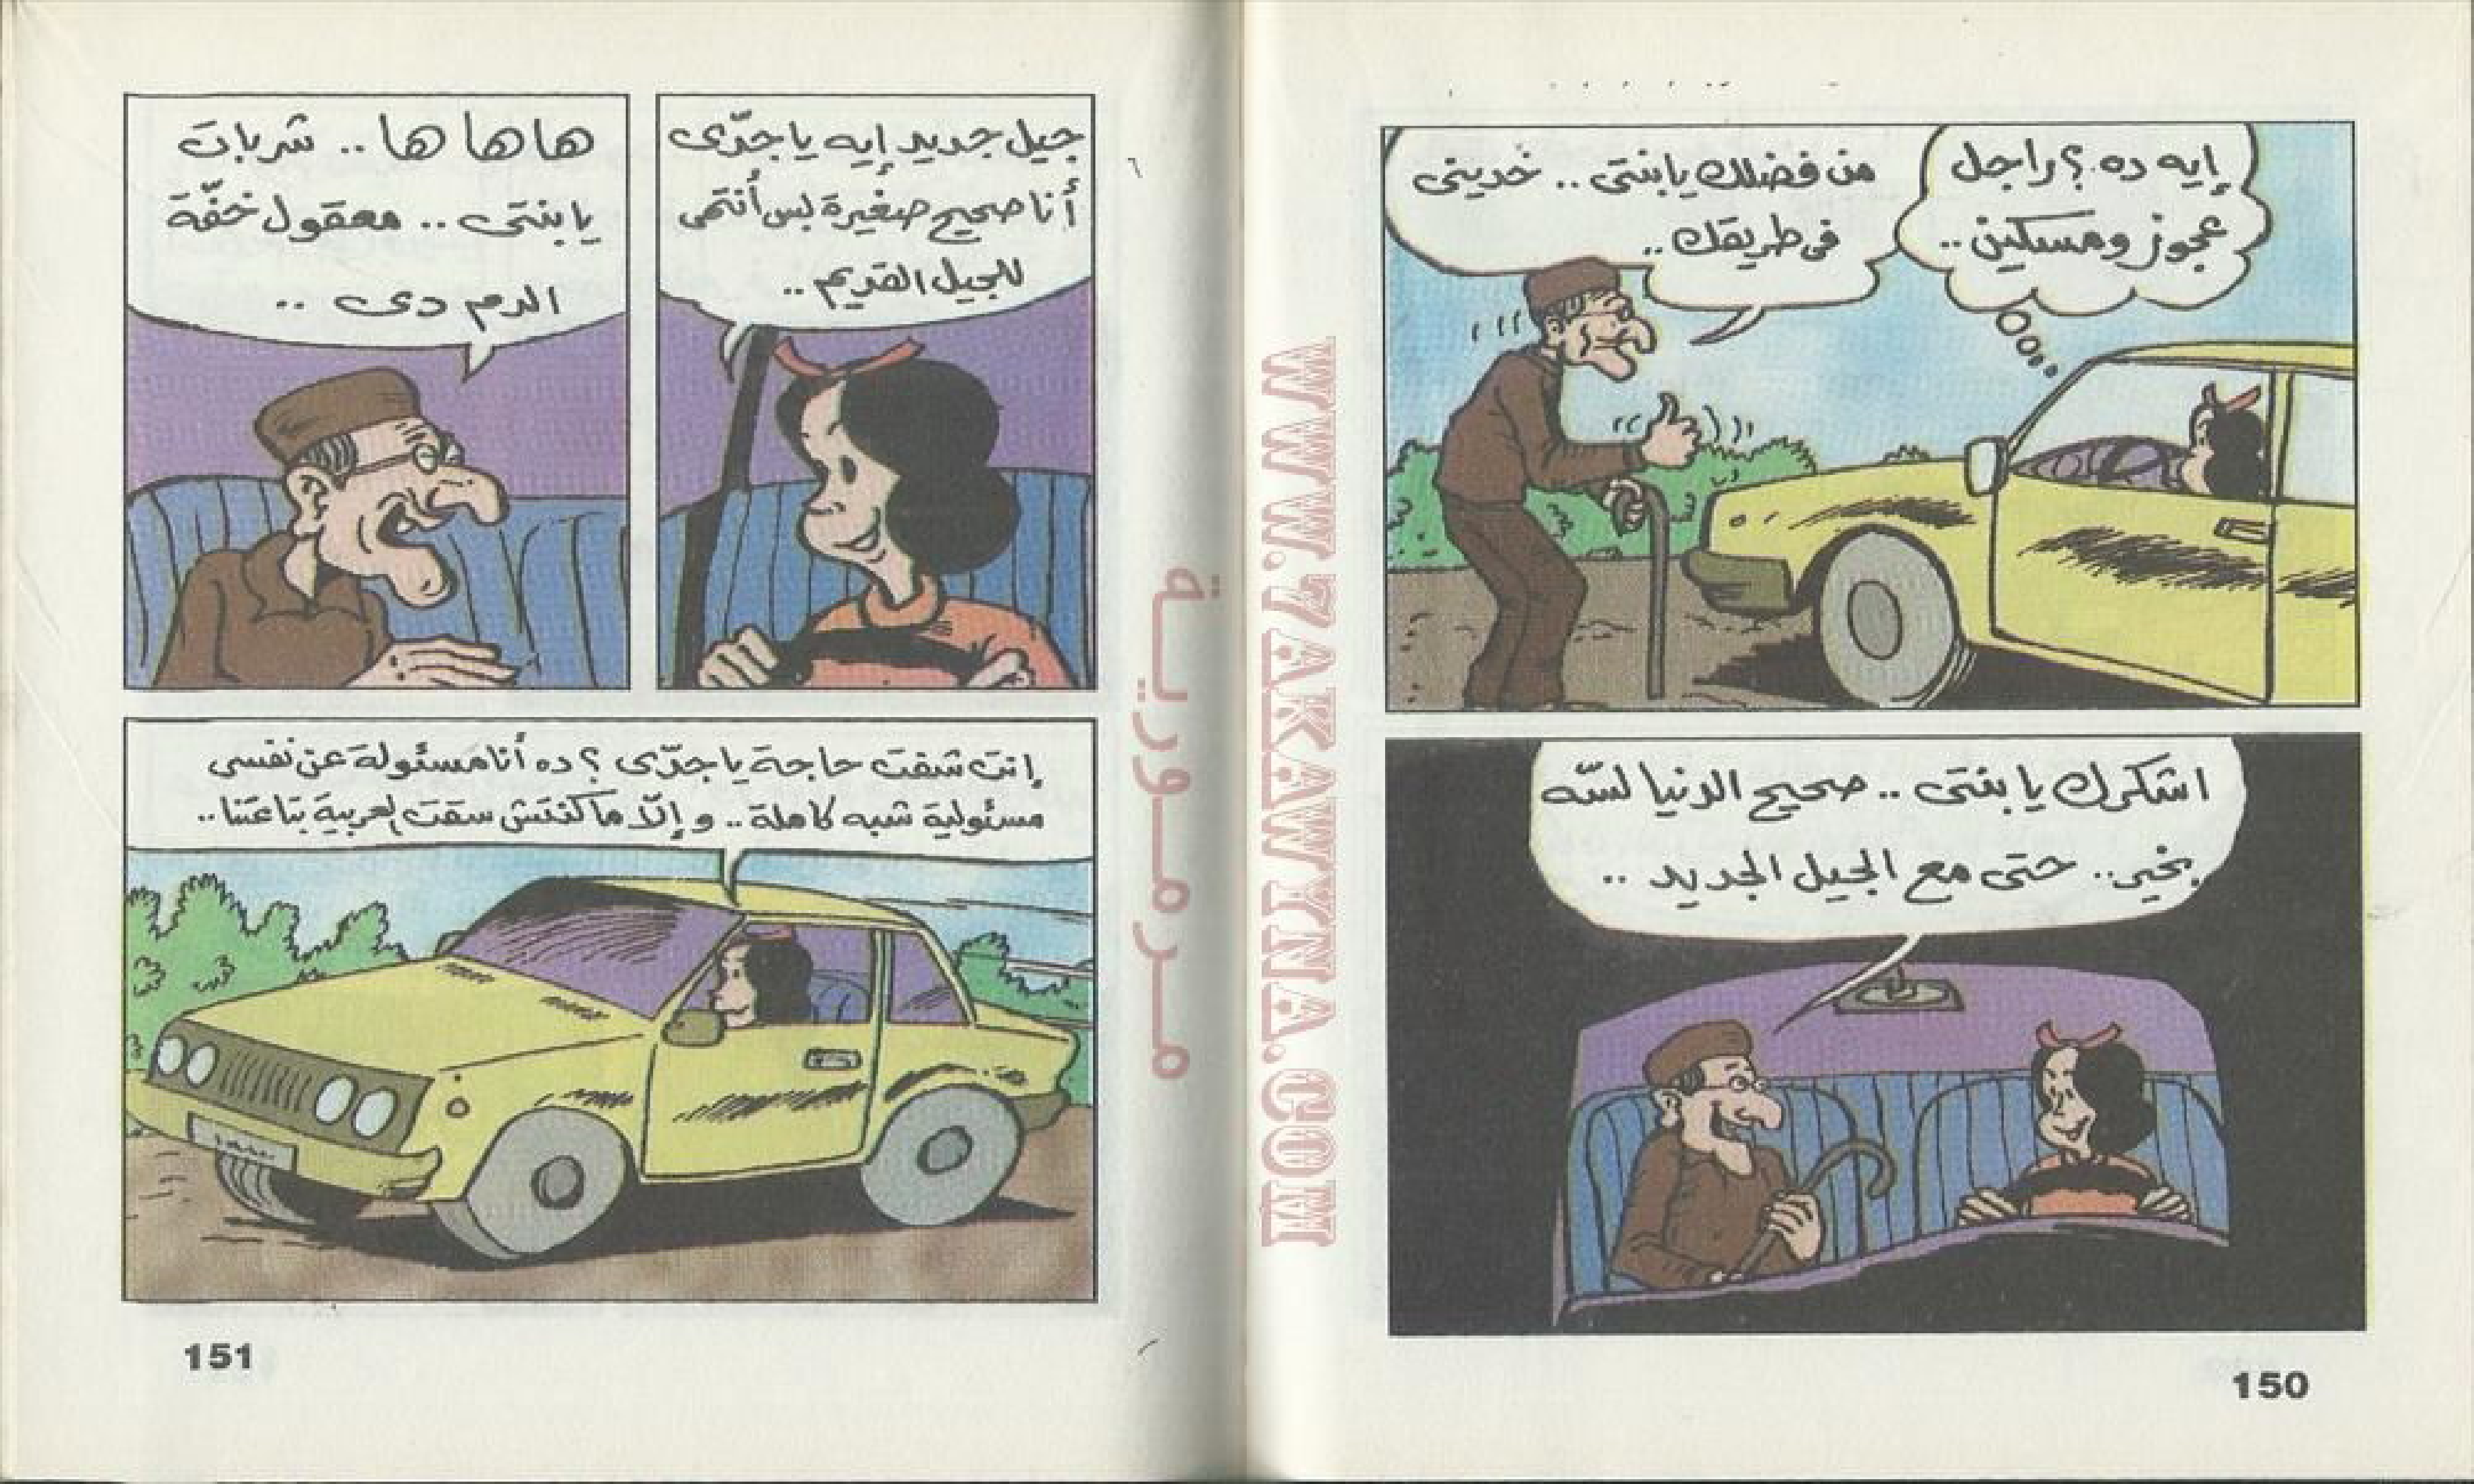 إيه ده ؟ راجل
عجوز ومسكين ..
من فضلك يا بنتى .. خدينى
فى طريقك ..
اشكرك يا بنتى .. صحيح الدنيا لسّه
بخير .. حتى مع الجيل الجديد ..
150
جيل جديد إيه يا جدّى
أنا صحيح صغيرة بس أنتمى
للجيل القديم ..
ها ها ها .. شربات
يا بنتى .. معقول خفّة
الدم دى ..
إنت شفت حاجة يا جدّى ؟ ده أنا مسئولة عن نفسى
مسئولية شبه كاملة .. و إلّا ما كنتش سقت العربية بتاعتنا ..
151
مرمورية
WWW.7AKAWYNA.COM